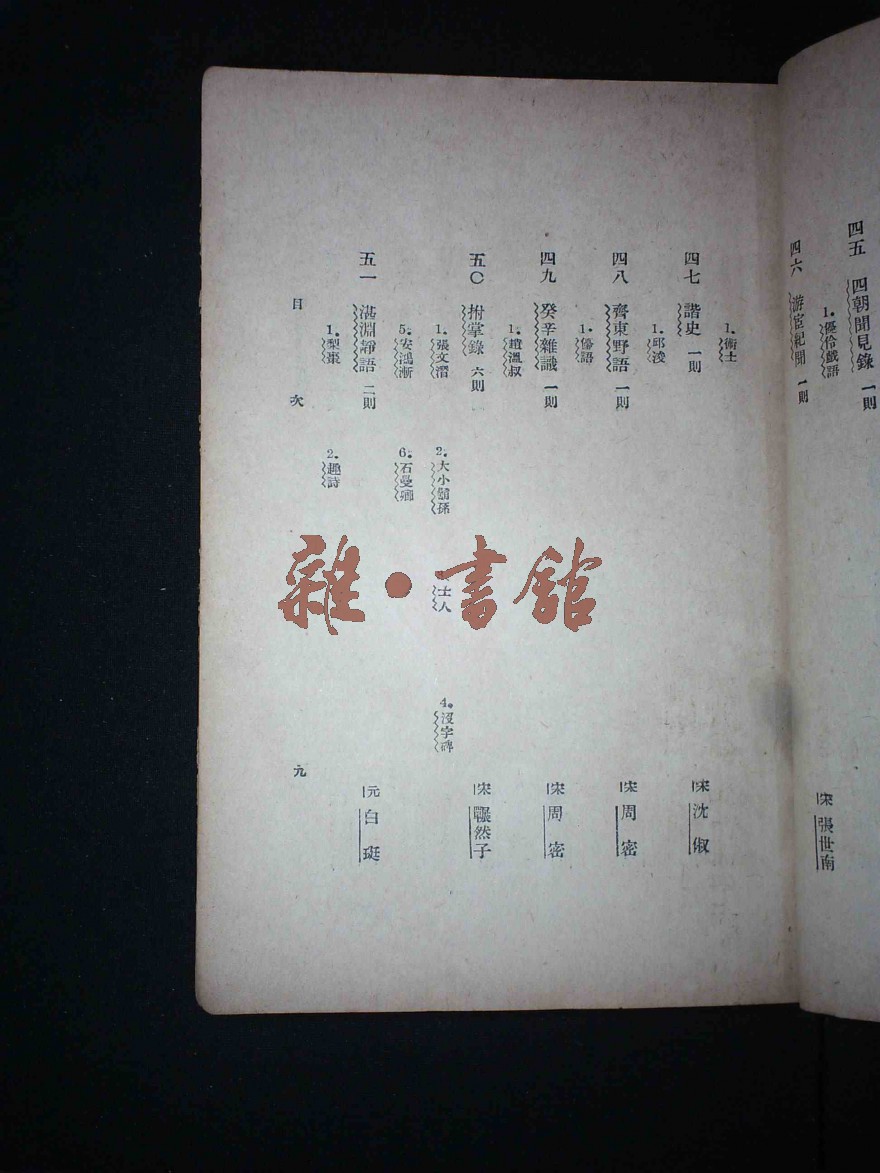 四五 四朝聞見錄 一則
1. 優伶戲語
四六 游宦紀聞 一則 宋 張世南
1. 術士
四七 諧史 一則 宋 沈俶
1. 邱浚
四八 齊東野語 一則 宋 周密
1. 優語
四九 癸辛雜識 一則 宋 周密
1. 趙溫叔
五〇 拊掌錄 六則 宋 囅然子
1. 張文潛 2. 大小胡孫 士人 4. 沒字碑
5. 安鴻漸 6. 石曼卿
五一 湛淵靜語 二則 元 白珽
1. 梨棗 2. 趣詩
目次 九
雜·書館